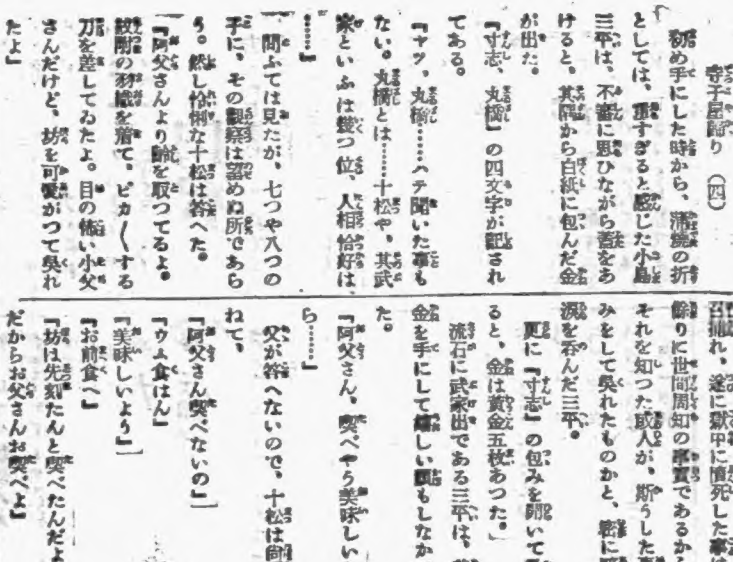 寺子屋歸り (四)
初め手にした時から、蒲燒の折
としては、重すぎると感じた小島
三平は、不審に思ひながら蓋をあ
けると、其隅から白紙に包んだ金
が出た。
『寸志、丸橋』の四文字が記され
てある。
『ヤツ、丸橋……ハテ聞いた事も
ない。丸橋とは……十松や、其武
家といふは幾つ位、人相恰好は、
……』
問ふては見たが、七つや八つの
手に、その觀察は望めぬ所であら
う。然し怜悧な十松は答へた。
『阿父さんより齡を取つてるよ。
紋附の羽織を着て、ピカ〳〵する
刀を差してゐたよ。目の怖い小父
さんだけど、坊を可愛がつて吳れ
たよ』
召捕れ、遂に獄中に憤死した事は
餘りに世間周知の事實であるから
それを知つた或人が、斯うした
みをして吳れたものかと、密に
淚を呑んだ三平。
更に『寸志』の包みを開いて
ると、金は黃金五枚あつた。
流石に武家出である三平は、
金を手にして嬉しい顏もしなか
た。
『阿父さん、喫べやう美味しい
ら……』
父が答へないので、十松は
ねて、
『阿父さん喫べないの』
『ウム食はん』
『美味しいより』
『お前食へ』
『坊は先刻たんと喫べたんだよ
だからお父さんお喫べよ』